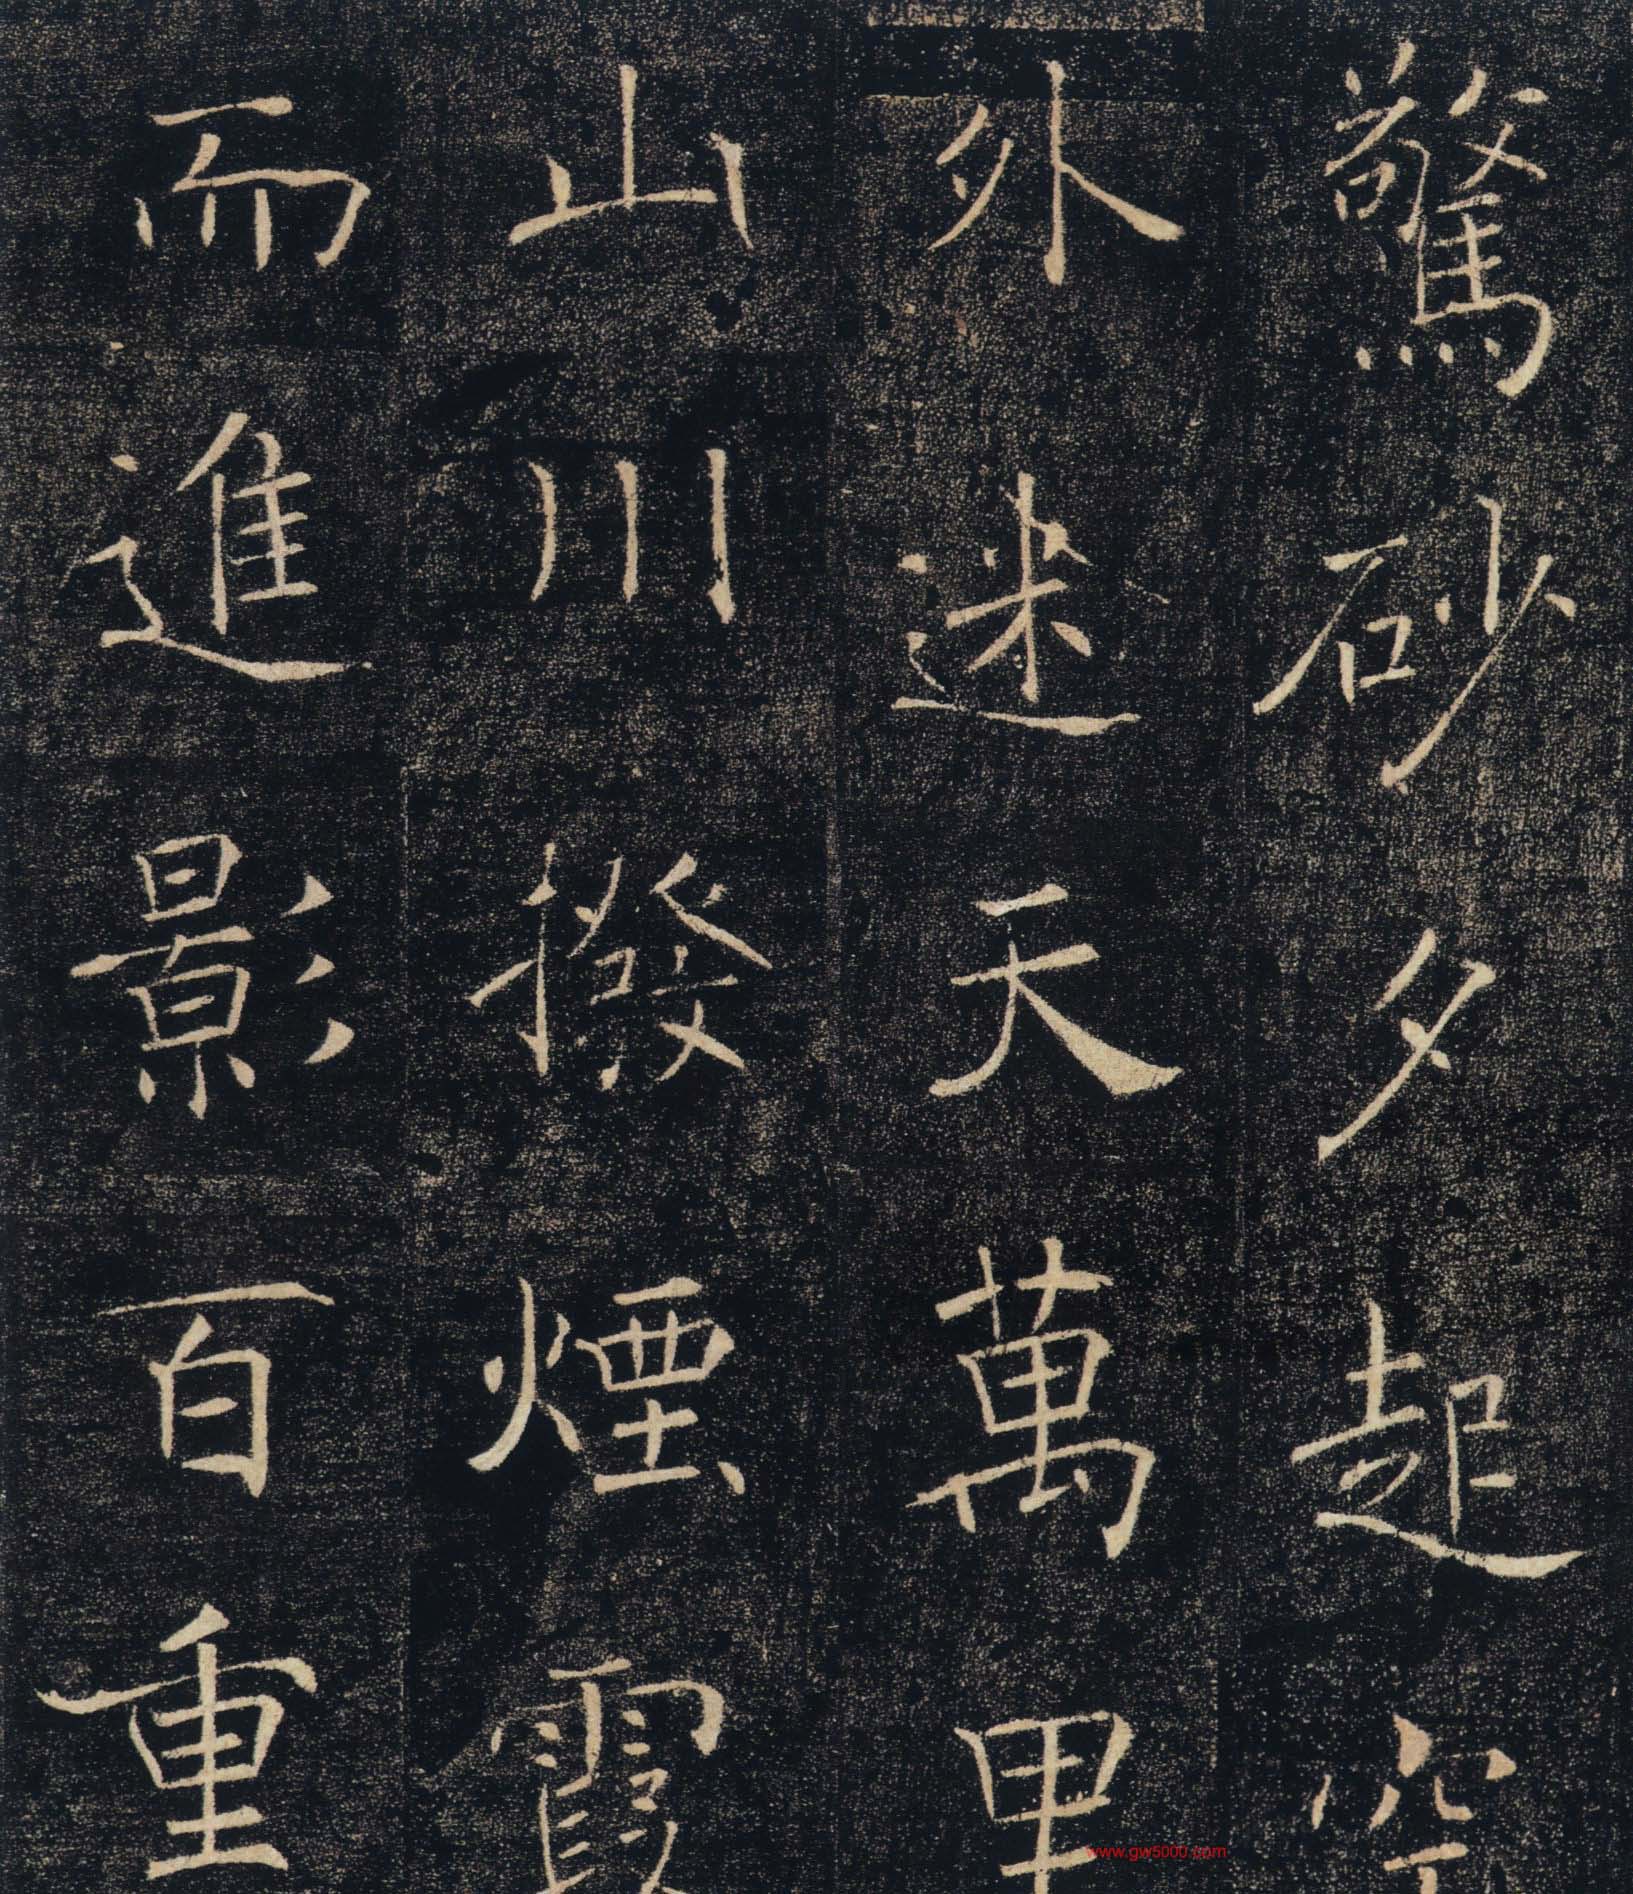 驚砂夕起空
外迷天萬里
山川撥煙霞
而進影百重
www.gw5000.com